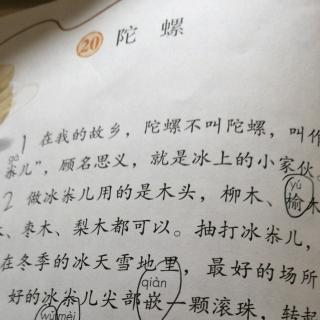 20 陀 螺
1 在我的故乡，陀螺不叫陀螺，叫作
gá
尜儿”，顾名思义，就是冰上的小家伙。
yú
2 做冰尜儿用的是木头，柳木、榆木
、枣木、梨木都可以。抽打冰尜儿，
在冬季的冰天雪地里，最好的场所
qiàn
好的冰尜儿尖部嵌一颗滚珠，转起
wū mèi